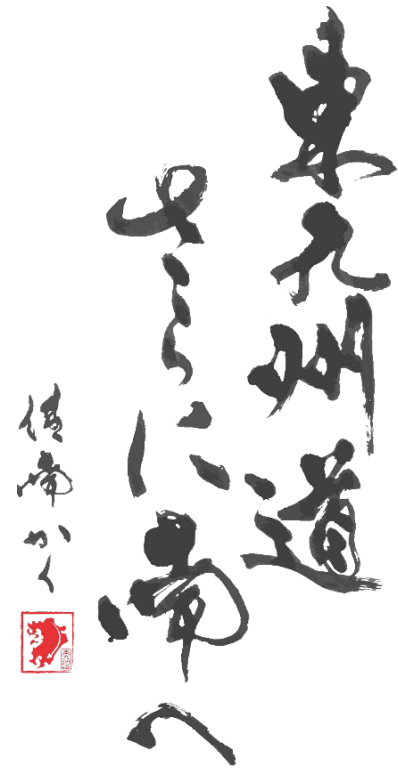 東九州道
さらに南へ
かく